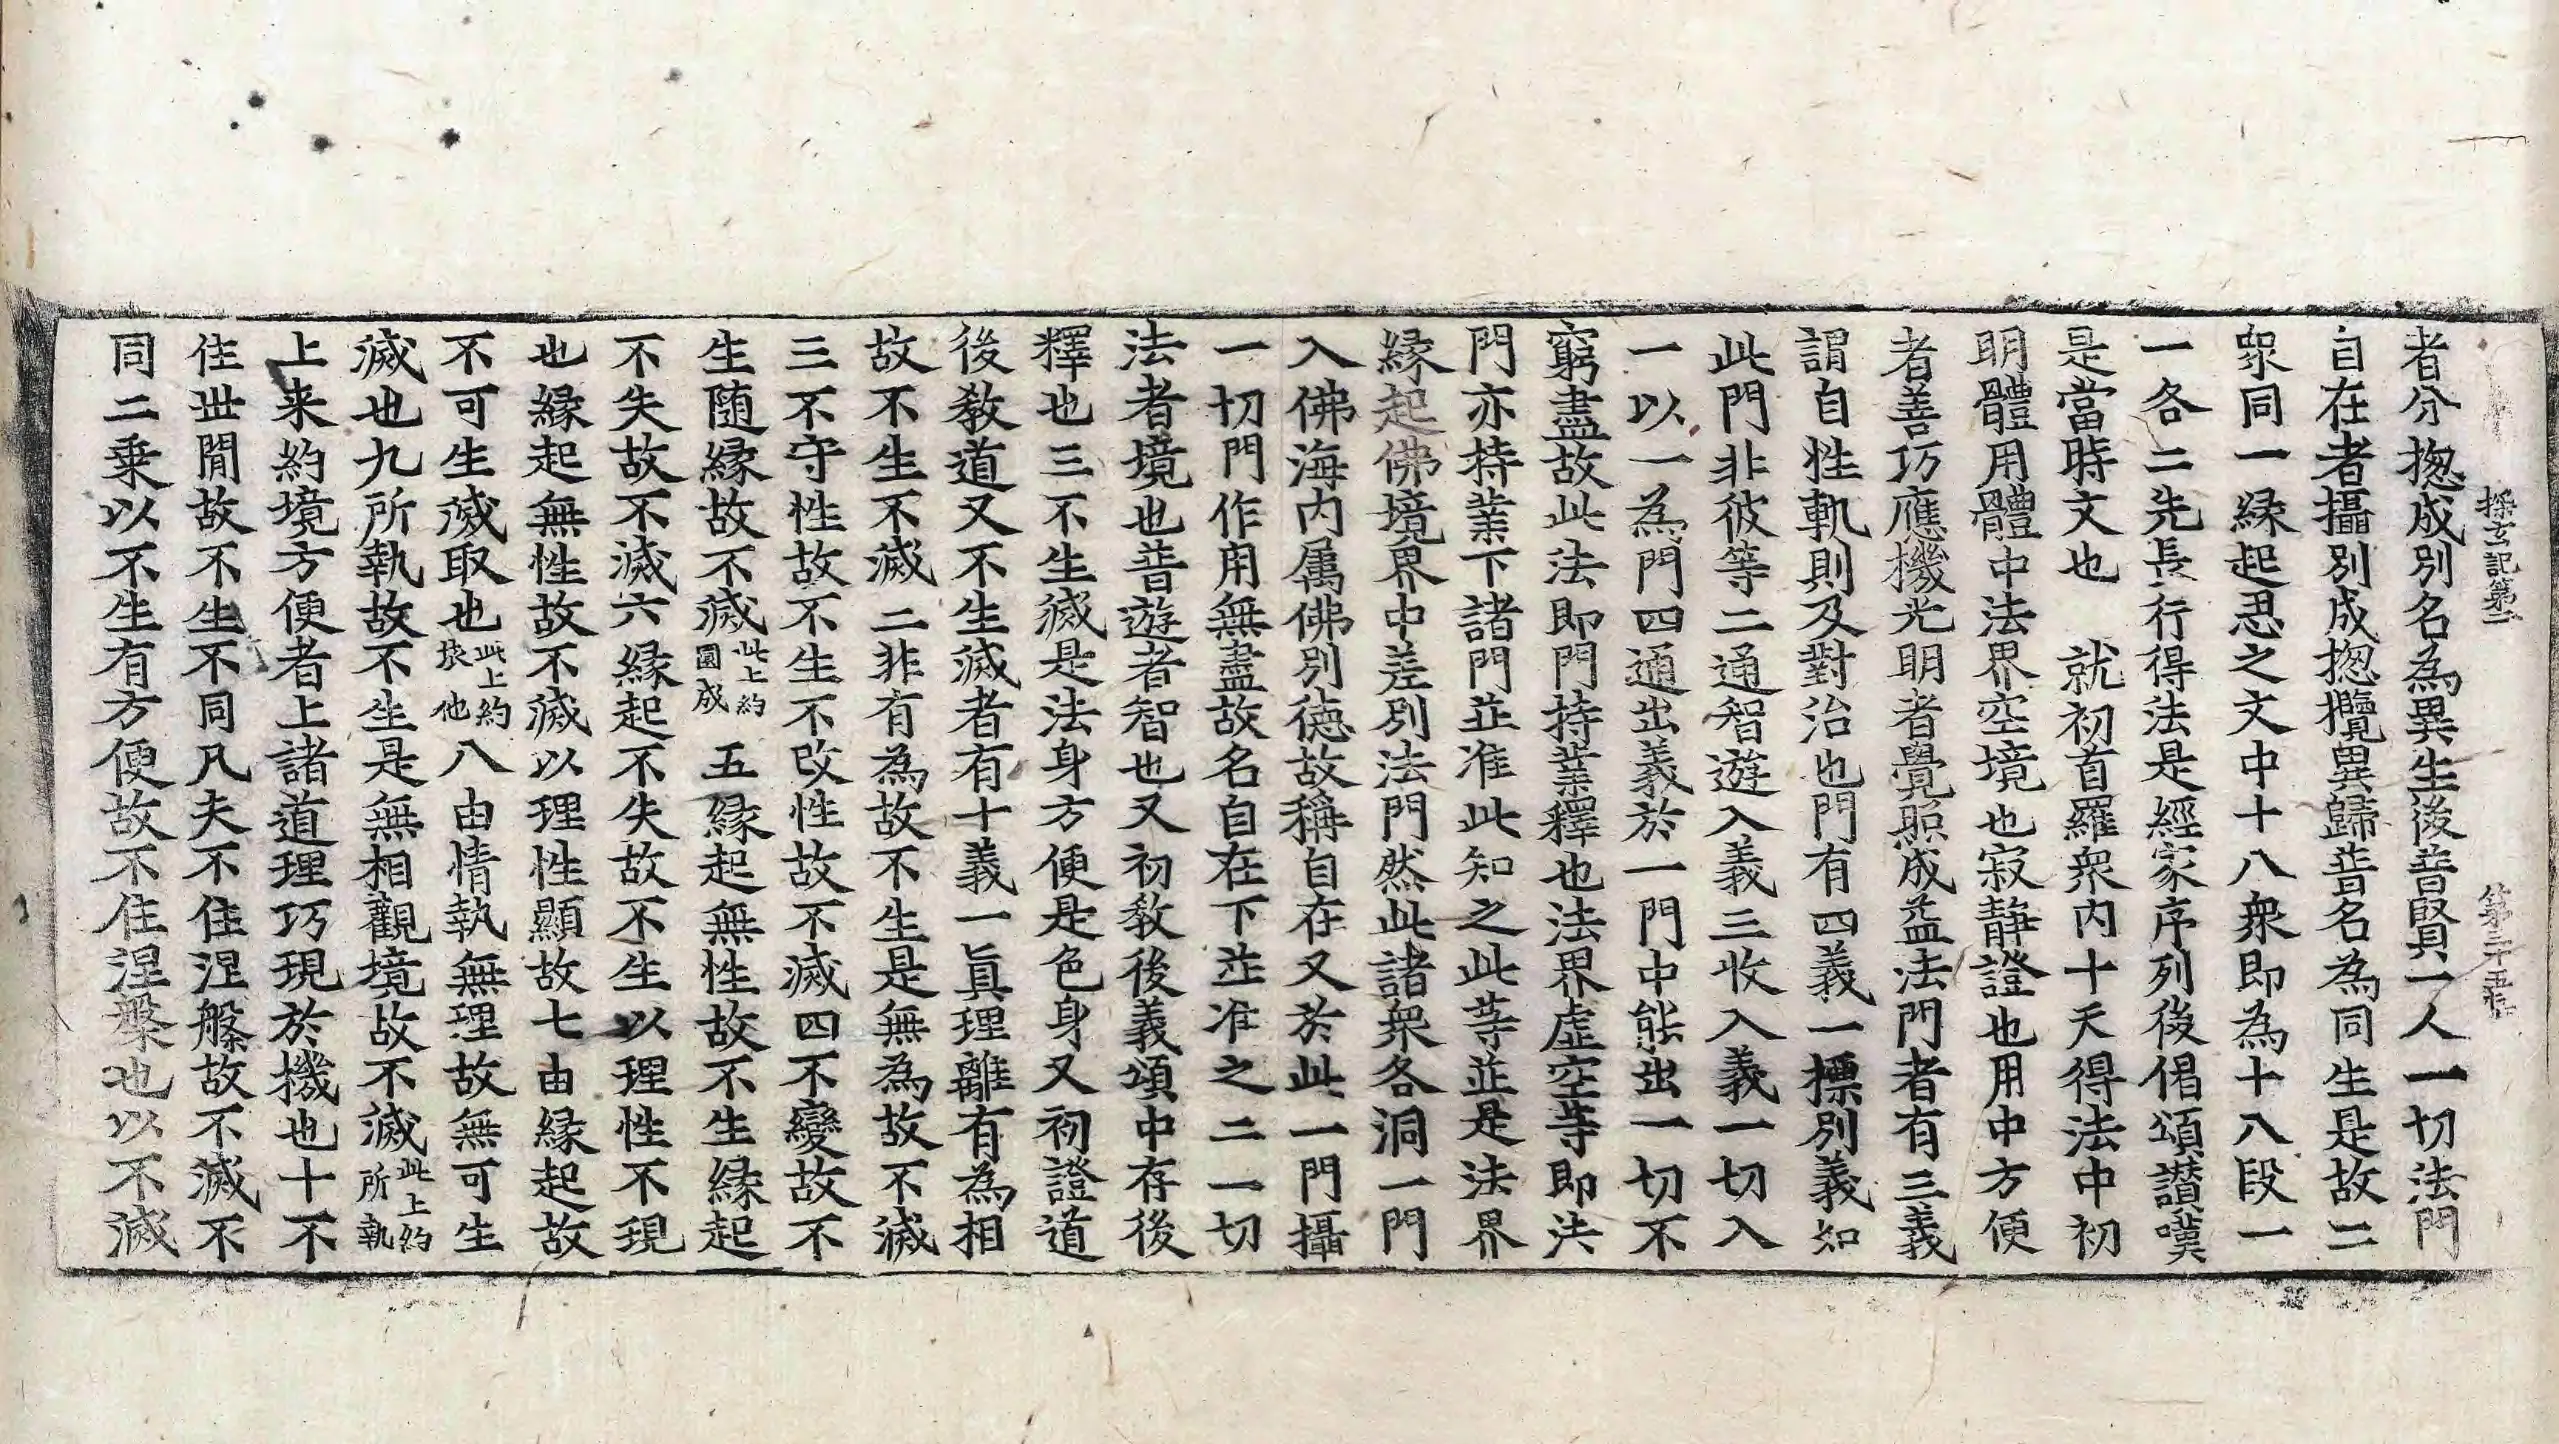 探玄記第二 第三十五張
者分揔成別名為異生後普賢一人一切法門
自在者攝別成揔攬異歸普名為同生是故二
衆同一縁起思之文中十八衆即為十八段一
一各二先長行得法是經家序列後偈頌讃嘆
是當時文也 就初首羅衆内十天得法中初
明體用體中法界空境也寂静證也用中方便
者善巧應機光明者覺照成益法門者有三義
謂自性軌則及對治也門有四義一摽別義如
此門非彼等二通智遊入義三收入義一切入
一以一為門四通出義於一門中能出一切不
窮盡故此法即門持業釋也法界虚空等即法
門亦持業下諸門並准此知之此等並是法界
縁起佛境界中差別法門然此諸衆各洞一門
入佛海内属佛別徳故稱自在又於此一門攝
一切門作用無盡故名自在下並准之二一切
法者境也普遊者智也又初教後義頌中存後
釋也三不生滅是法身方便是色身又初證道
後教道又不生滅者有十義一眞理離有為相
故不生不滅二非有為故不生是無為故不滅
三不守性故不生不改性故不滅四不變故不
生随縁故不滅此上約圓成 五縁起無性故不生縁起
不失故不滅六縁起不失故不生以理性不現
也縁起無性故不滅以理性顯故七由縁起故
不可生滅取也此上約依他八由情執無理故無可生
滅也九所執故不生是無相觀境故不滅此上約所執
上来約境方便者上諸道理巧現於機也十不
住世間故不生不同凡夫不住涅槃故不滅不
同二乗以不生有方便故不住涅槃也以不滅